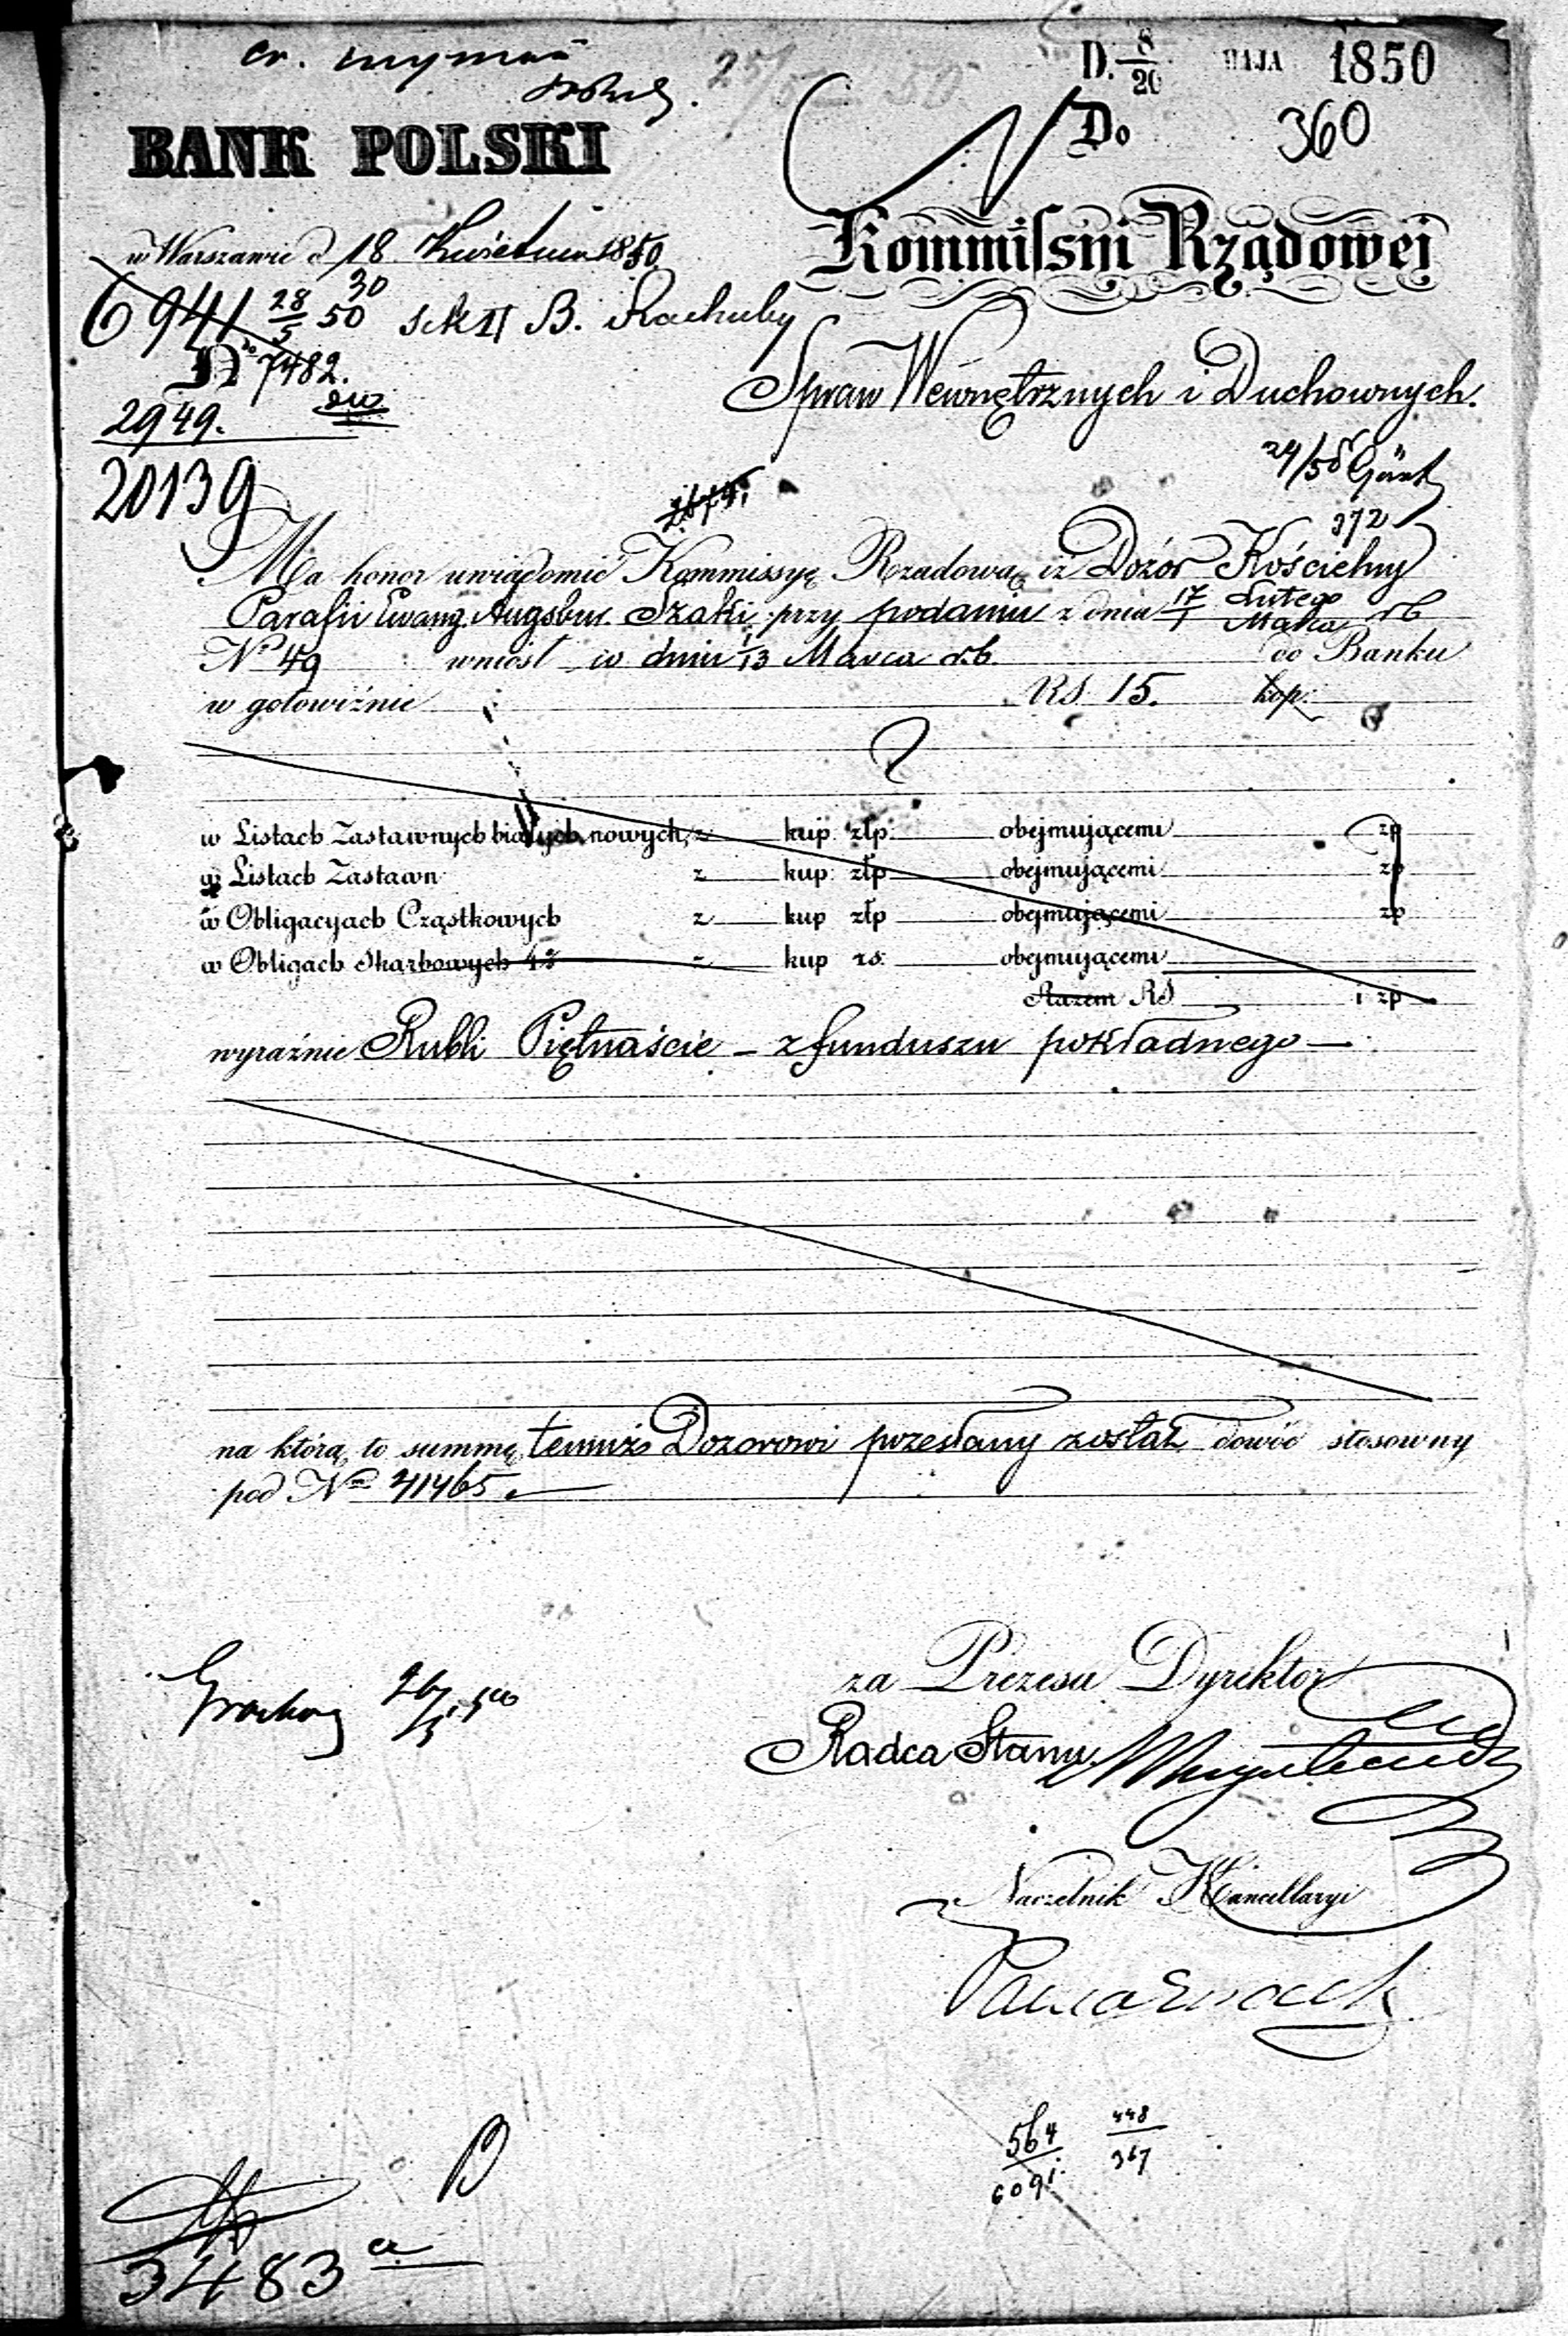 D. 8/20 MAJA 1850
Do 360
BANK POLSKI
Kommissyi Rządowej
w Warszawie d 18 Kwietnia 1850
6941 28/5 50 30 Sek II B. Rachuby
No 7482.
Spraw Wewnętrznych i Duchownych.
2949.
20139
372
Ma honor uwiadomić Kommissyę Rządową iż Dozór Kościelny
Parafii Ewang. Augsbur. Szaki przy podaniu z dnia 17/1 Lutego/Marca rb
No 49 wniósł w dniu 1/13 Marca r.b. do Banku
w gotowiźnie RS. 15. kop:
w Listach Zastawnych białych nowych z kup. złp. obejmującemi zp
w Listach Zastawn z kup. złp obejmującemi zp
w Obligacyach Cząstkowych z kup złp obejmującemi zp
w Obligach Skarbowych 4% z kup rs. obejmującemi
Razem RS i zp
wyraźnie Rubli Piętnaście – z funduszu pokładnego –
na którą to summę temuż Dozorowi przesłany został dowód stosowny
pod Nm 41465.
za Prezesa Dyrektor
Radca Stanu
Naczelnik Kancellaryi
564 448
6091. 367
B
3483 a